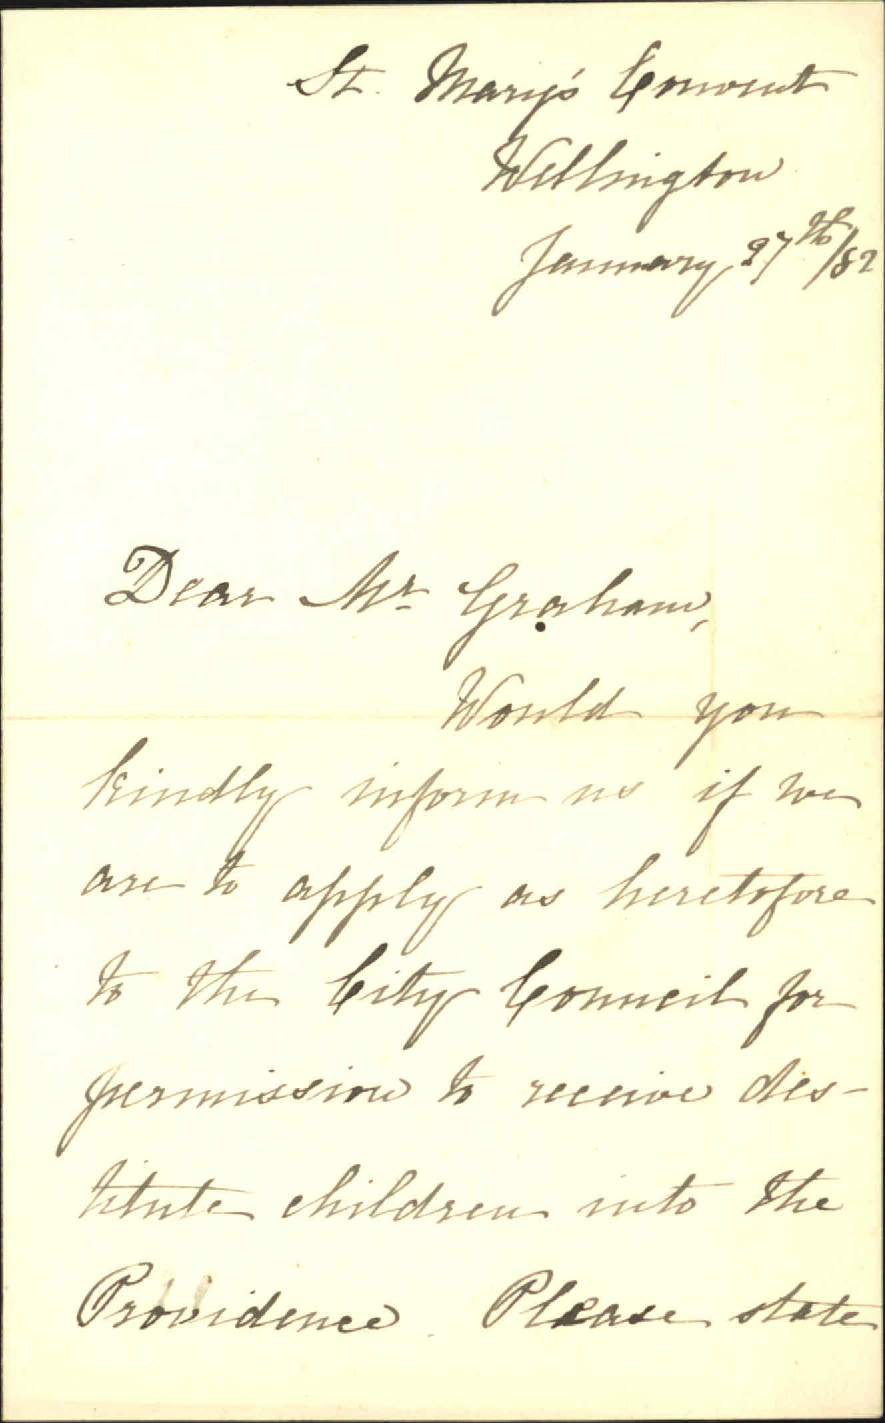 St. Mary's Convent
Wellington
January 27th/82
Dear Mr Graham,
Would you
kindly inform us if we
are to apply as heretofore
to the City Council for
permission to receive des-
titute children into the
Providence. Please state